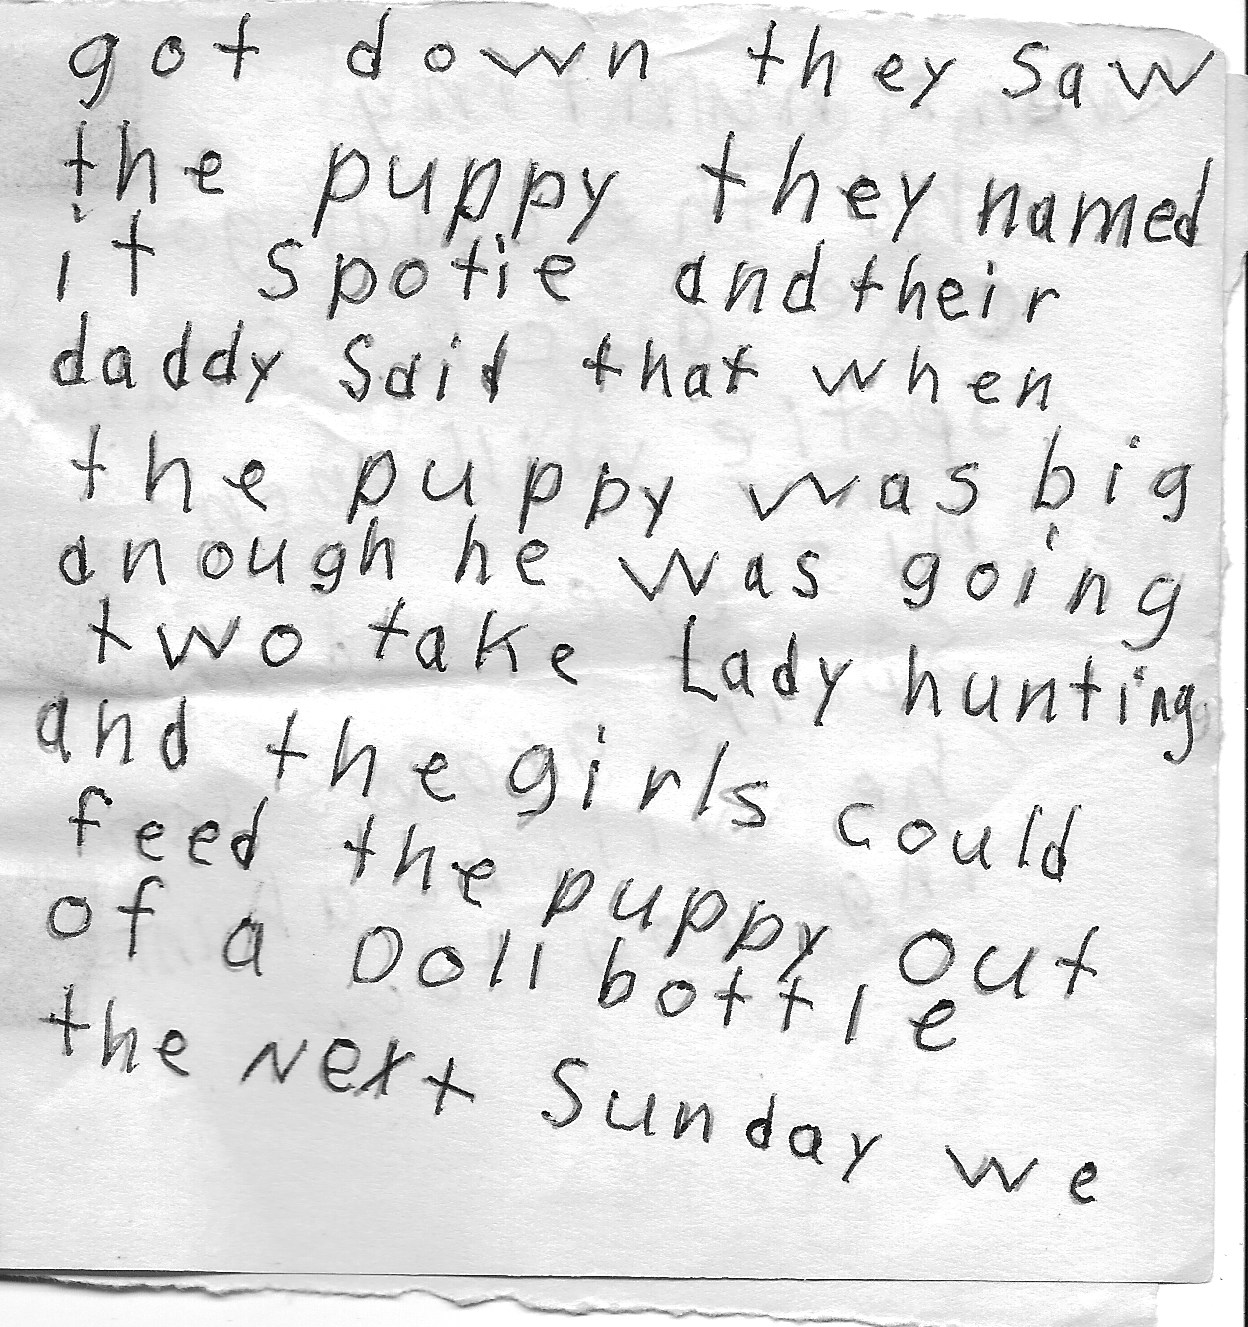 got down they saw
the puppy they named
it spotie and their
daddy said that when
the puppy was big
anough he was going
two take Lady hunting
and the girls could
feed the puppy out
of a Doll bottle
the Next Sunday we